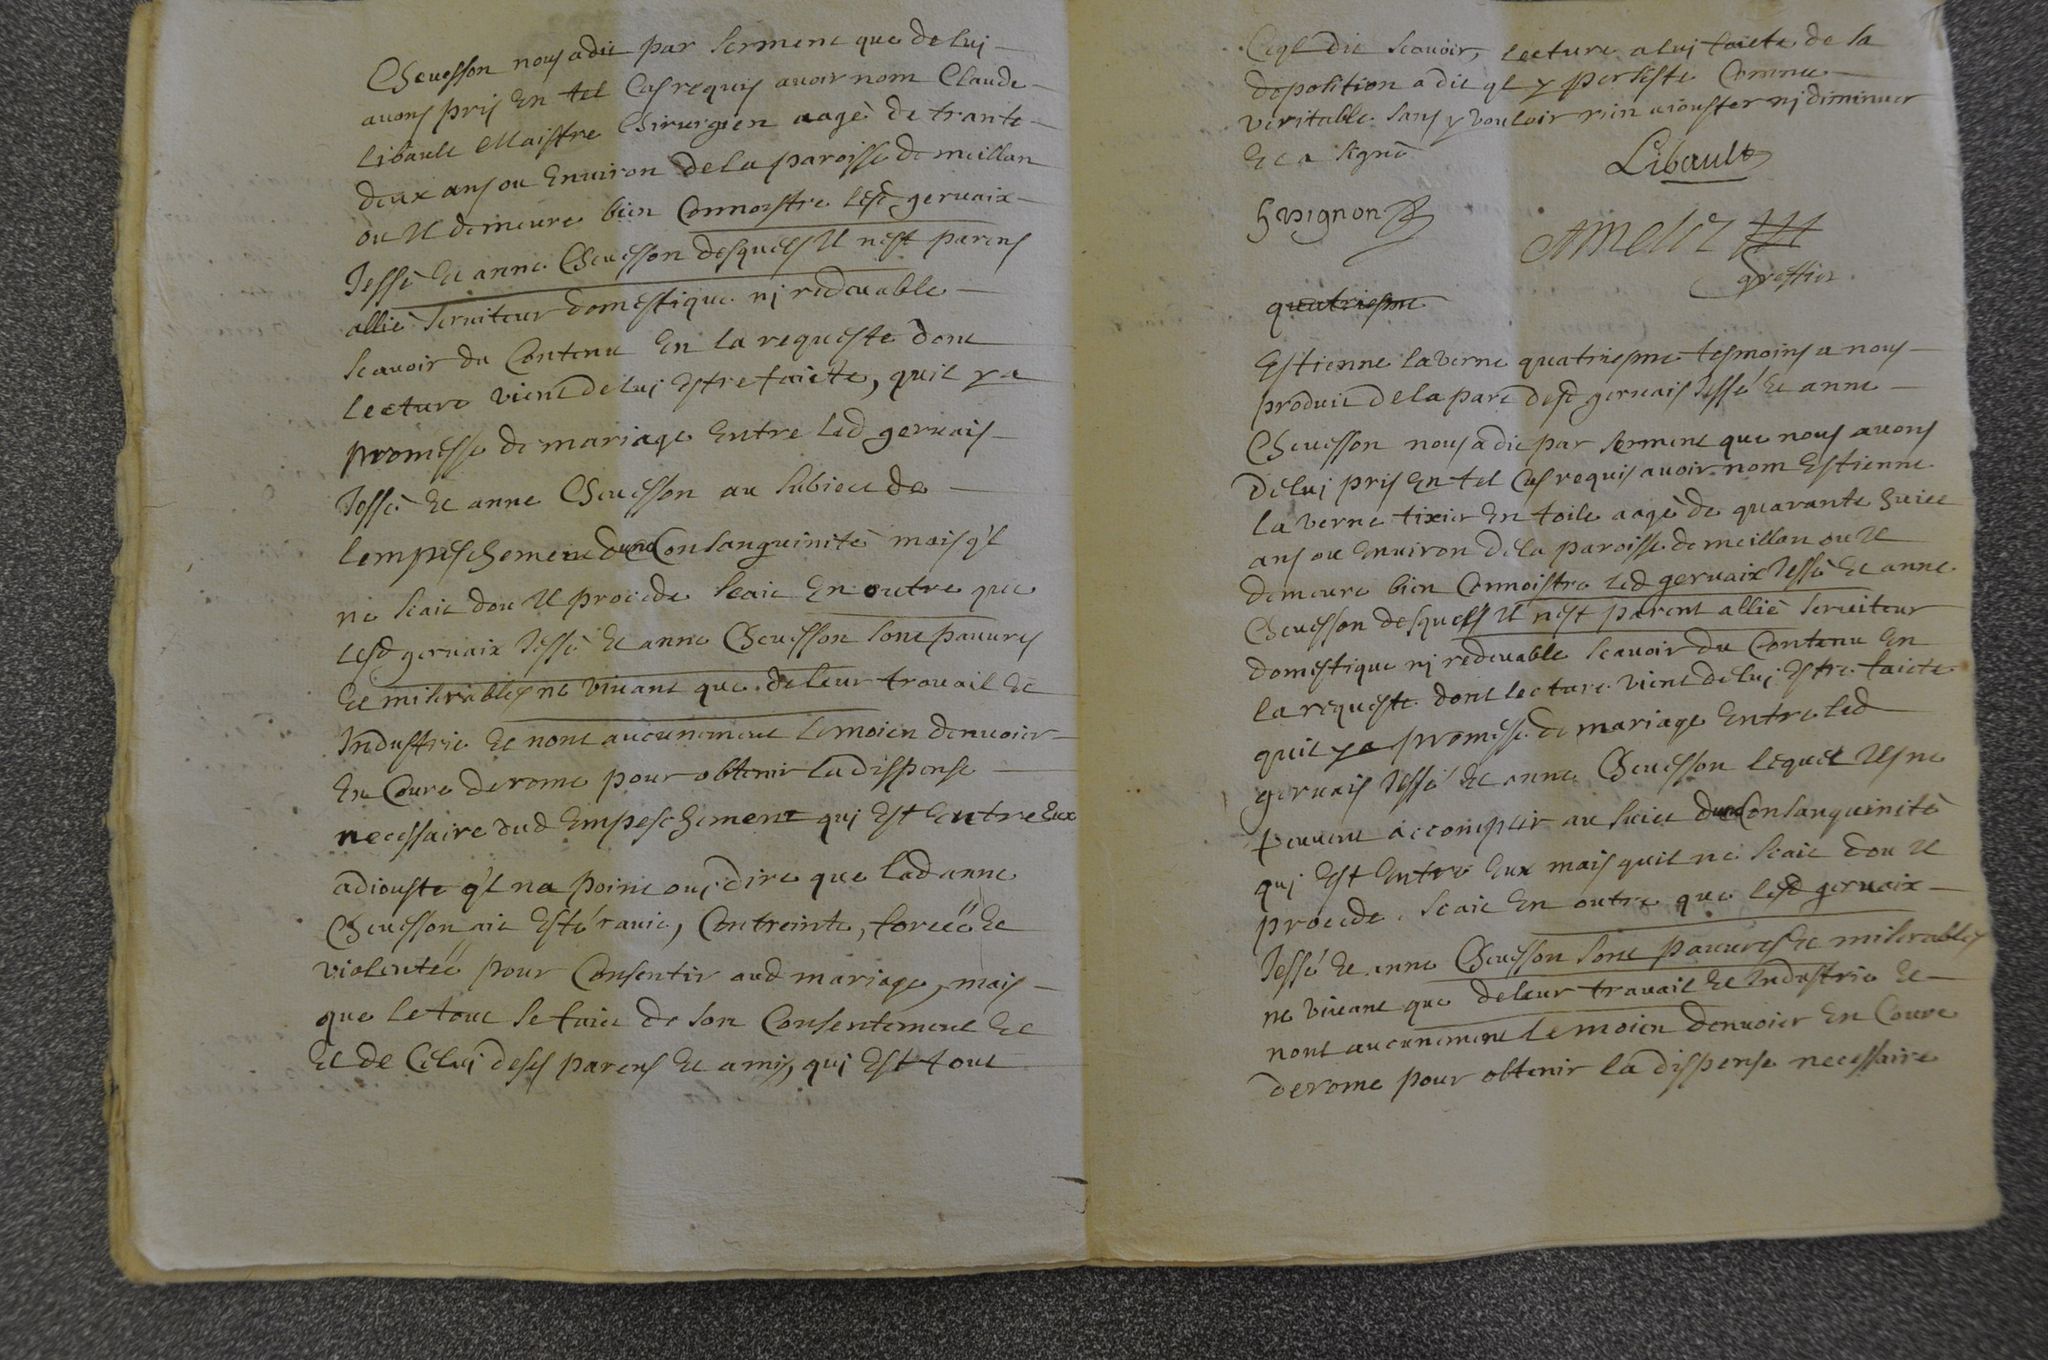 Cheuesson nous a dit par serment que de luj
auons pris En tel Cas requis auoir nom Claude
Libault Maistre Chirurgien aagé de trante
deux ans ou Enuiron de la paroisse de meillan
ou Il demeure bien Connoistre lesd gervaix
Jessé Et anne Cheuesson desquels Il nest parens
allié seruiteur domestique nj redeuable
scauoir du Contenu En la requeste dont
lecture vient de luj Estre faicte, quil y a
promesse de mariage Entre led geruais
Jessé Et anne Cheuesson au subiect de
lempeschement dune Consanguinité mais q'l
ne scait dou Il procede scait En outre que
lesd geruaix Jessé Et anne Cheuesson sont pauures
Et miserables ne viuant que de leur trauail Et
Industrie Et nont aucunement le moien denuoier
En Cour de rome pour obtenir la dispense
necessaire dud Empeschement quj Est Entre Eux
adiouste q'l na point ouj dire que lad anne
Cheuesson ait Esté rauie, Contreinte, forcéé Et
violentéé pour Consentir aud mariage, mais
que le tout se faict de son Consentement Et
Et de Celuj de ses parens Et amis, quj Est tout
Ce q'l dit scauoir, lecture a luj faicte de sa
deposition a dit q'l y persiste Comme
veritable sans y vouloir rien aiouster nj diminuer
Et a signé
Libault
Gvignon
Amelot
greffier
quatriesme
Estienne laverne quatriesme tesmoins a nous
produit de la part desd geruais Jessé Et anne
Cheuesson nous a dit par serment que nous auons
de luj pris En tel Cas requis auoir nom Estienne
laverne tixier En toile aagé de quarante huict
ans ou Enuiron de la paroisse de meillan ou Il
demeure bien Connoistre lesd geruaix Jessé Et anne
Cheuesson desquels Il nest parent allié seruiteur
domestique nj redeuable scauoir du Contenu En
la requeste dont lecture vient de luj Estre faicte
quil y a promesse de mariage Entre led
geruais Jessé Et anne Cheuesson lequel Ils ne
peuuent accomplir au suiect dune Consanguinité
quj Est Entre Eux mais quil ne scait dou Il
procede, scait En outre que lesd geruaix
Jessé Et anne Cheuesson sont pauures Et miserables
ne viuant que de leur trauail Et Industrie Et
nont aucunement le moien denuoier En Cour
de rome pour obtenir la dispense necessaire